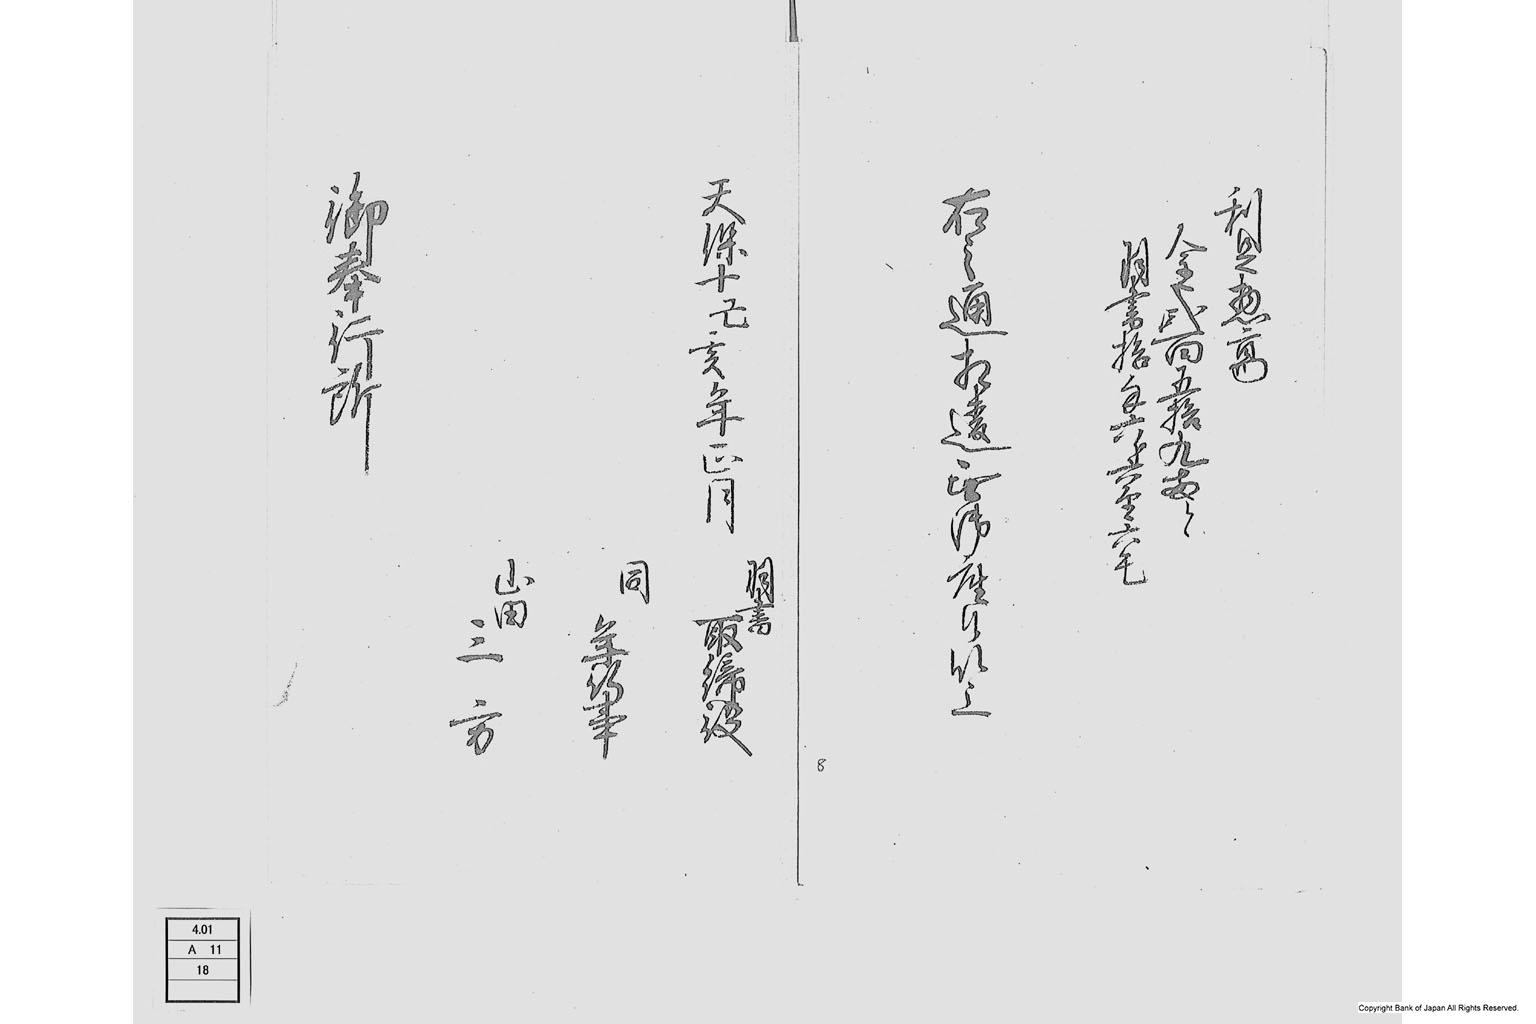 利足惣高
金弐百五拾九両ト
羽書拾匁六分六厘六毛
右之通相違無御座候以上
8
天保十己亥年正月
羽書
取締役
同
年行事
山田
三方
御奉行所
4.01
A 11
18
Copyright Bank of Japan All Rights Reserved.